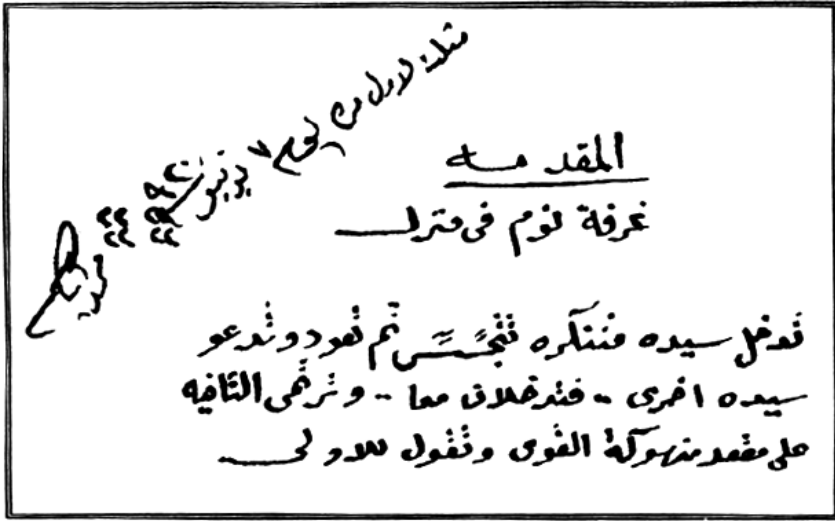 مثلت لاول مره يوم ٧ يونيو
المقدمـــه
غرفة نوم فى منزلـــ
تدخل سيده متنكره تتجسس ثم تعود وتدعو
سيده اخرى .. فتدخلان معا .. وترتمى الثانيه
على مقعد منهوكة القوى وتقول للاولى